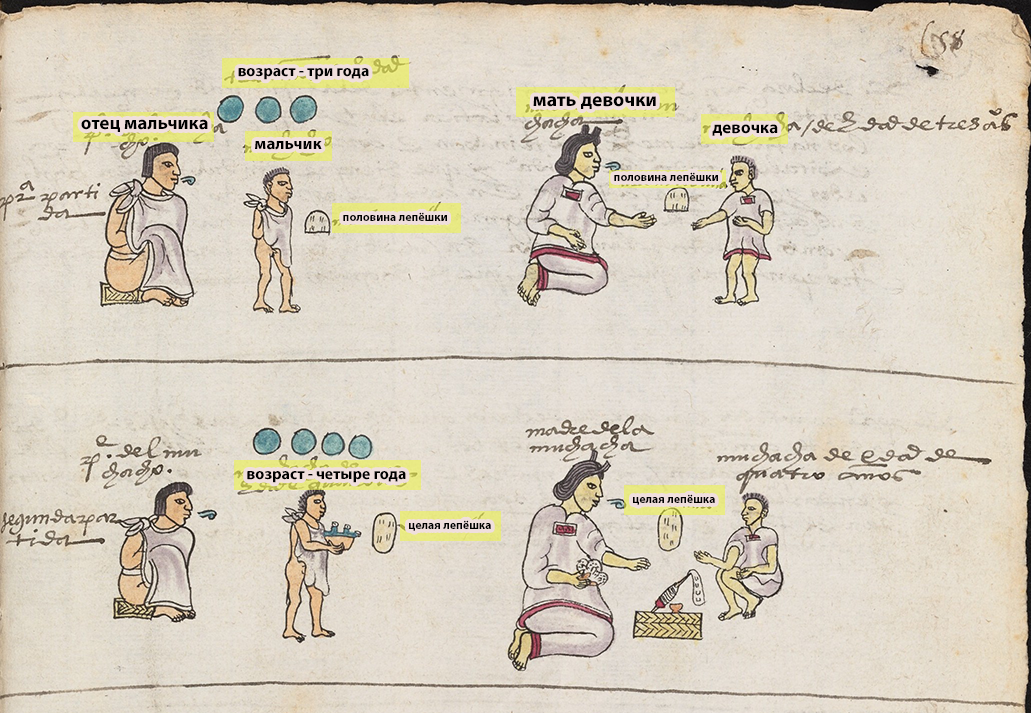 58
возраст - три года
мать девочки
отец мальчика
девочка
a / de hedad de tres años
мальчик
половина лепёшки
pra parti
da
половина лепёшки
madre dela
muchacha
p. del mu
chacho.
muchacha de edad de
quatro años
возраст - четыре года
целая лепёшка
segunda par
tida
целая лепёшка